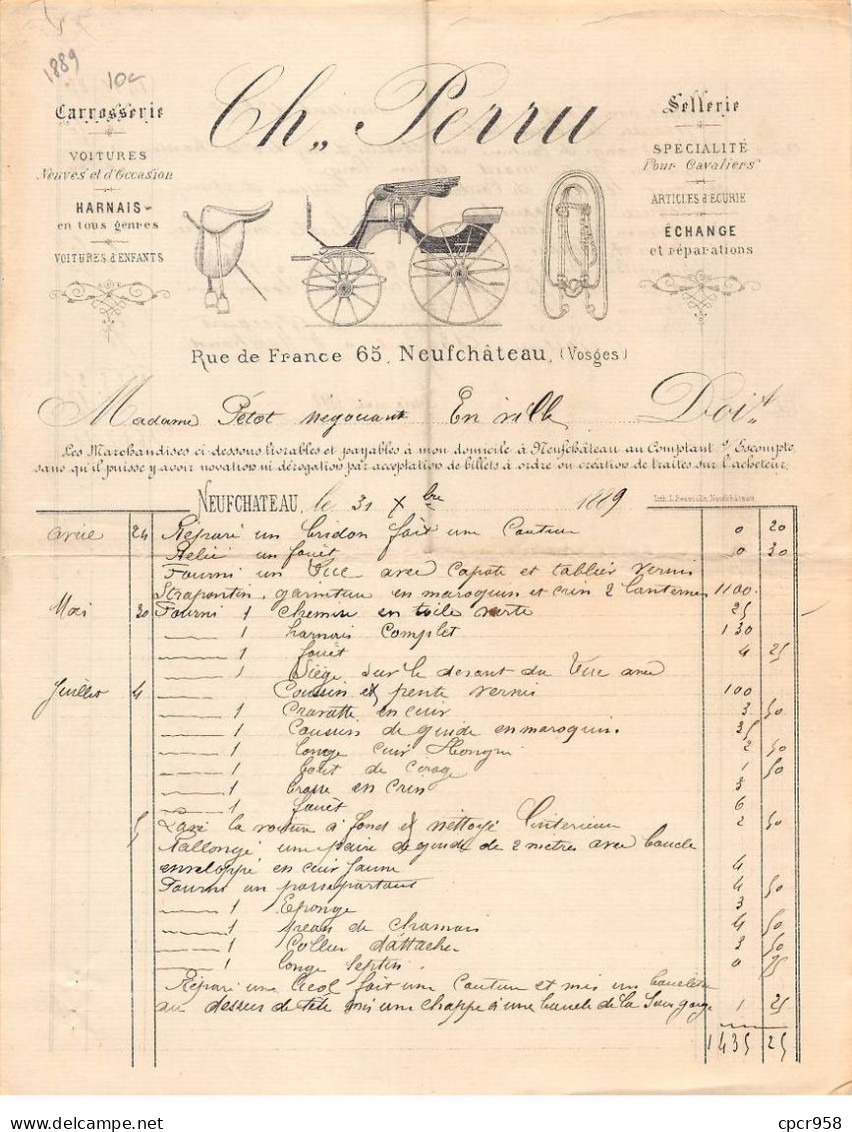 1889
10c
Ch,, Perru
Carrosserie
VOITURES
Neuves et d'Occasion
HARNAIS
en tous genres
VOITURES d'ENFANTS
Sellerie
SPÉCIALITÉ
Pour Cavaliers
ARTICLES d'ÉCURIE
ÉCHANGE
et réparations
Rue de France 65, Neufchâteau, (Vosges)
Madame Pétot négociant En ville Doit
Les Marchandises ci-dessous livrables et payables à mon domicile à Neufchâteau au Comptant Escompte,
sans qu'il puisse y avoir novation ni dérogation par acceptation de billets à ordre ou création de traites sur l'acheteur.
NEUFCHATEAU, le 31 Xbre 1889
Lith. L. Beaucolin, Neufchâteau
24 Réparé un bridon fait une Couture 0 20
Relié un fouet 0 30
Fourni un Duc avec Capote et tablier vernis
Strapontin, garniture en maroquin et crin 2 lanternes 1100
Mai 20 Fourni 1 chemise en toile verte 25
1 harnais Complet 130
1 fouet 4 25
1 Siège sur le devant du Duc avec
Juillet 4 Coussin et pente vernis 100
1 Cravatte en cuir 3 50
1 Coussin de guide en maroquin. 25
1 longe cuir Hongrie 2 50
1 boit de Cirage 1 50
1 brosse en Crin 3
1 fouet 6
5 Lavé la voiture à fond et nettoyé l'interieur 2 50
Rallongé une paire de guide de 2 mètres avec boucle
enveloppé en cuir Jaune 4
Fourni un passe partout 4 50
1 Eponge 3
1 peau de chamois 4 50
1 Collier d'attache 3 50
1 longe 0 25
Réparé une Licol fait une Couture et mis un
au dessus de tête mis une chappe à une boucle de la Sous gorge 1 25
1435 25
cpcr958